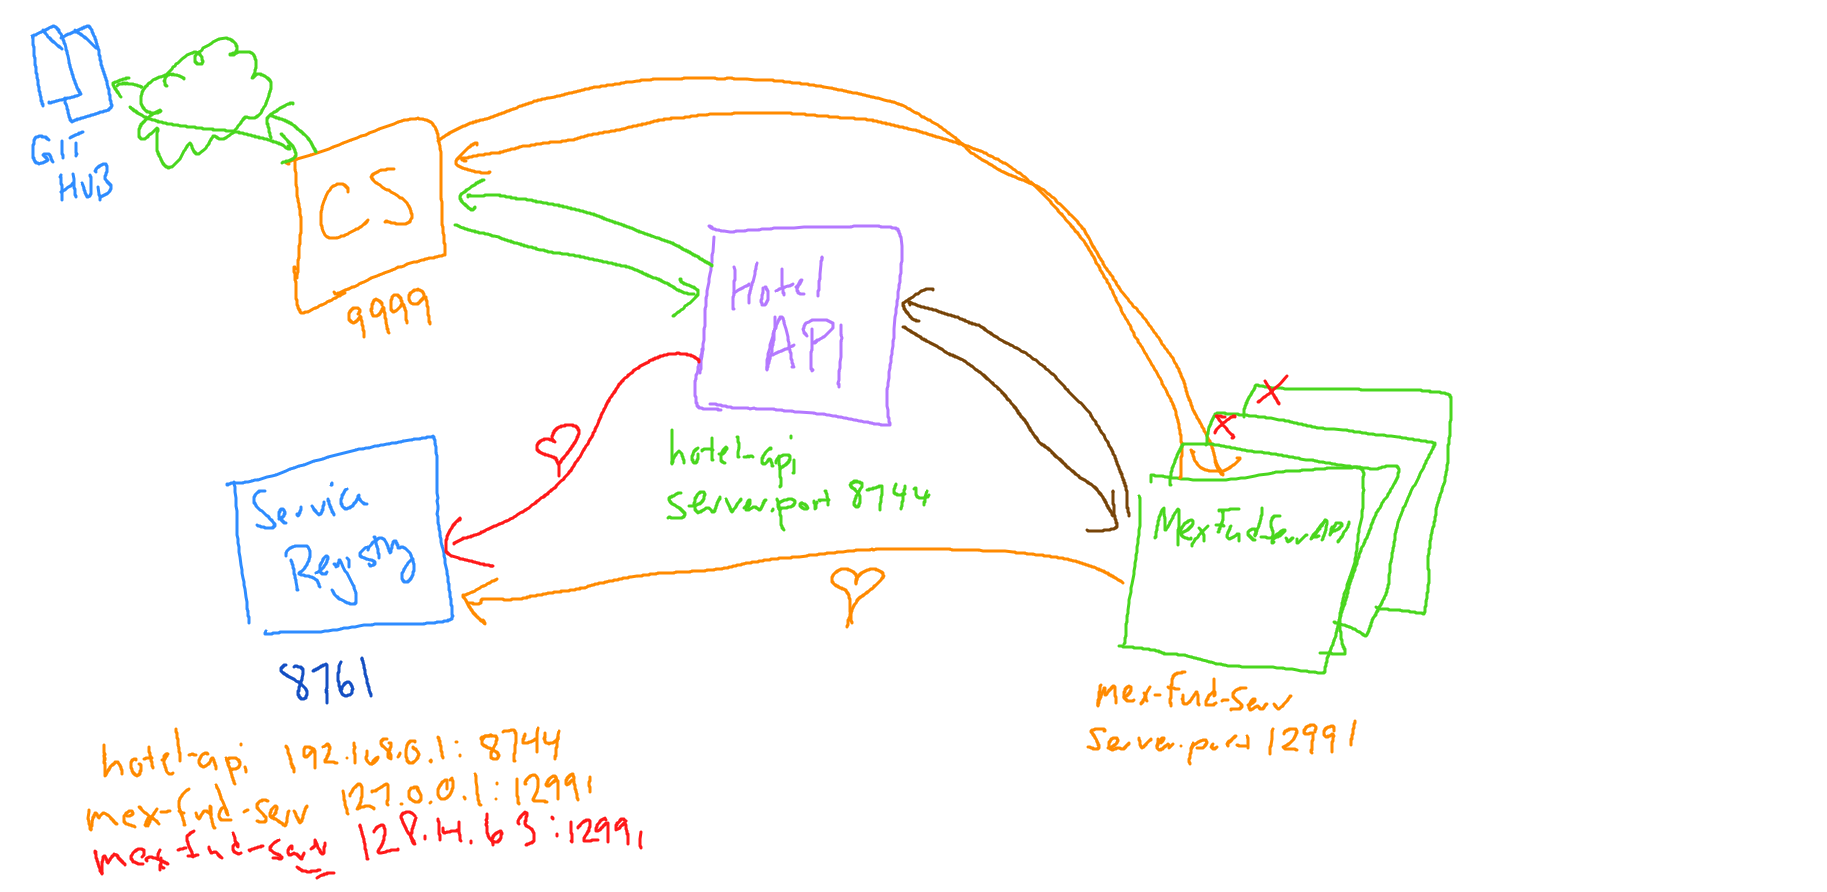 GIT
HUB
CS
9999
Hotel
API
hotel-api
server.port 8744
Service
Registry
8761
MexFndServAPI
mex-fnd-serv
server.port 12991
hotel-api 192.168.0.1: 8744
mex-fnd-serv 127.0.0.1:12991
mex-fnd-serv 128.14.63:12991